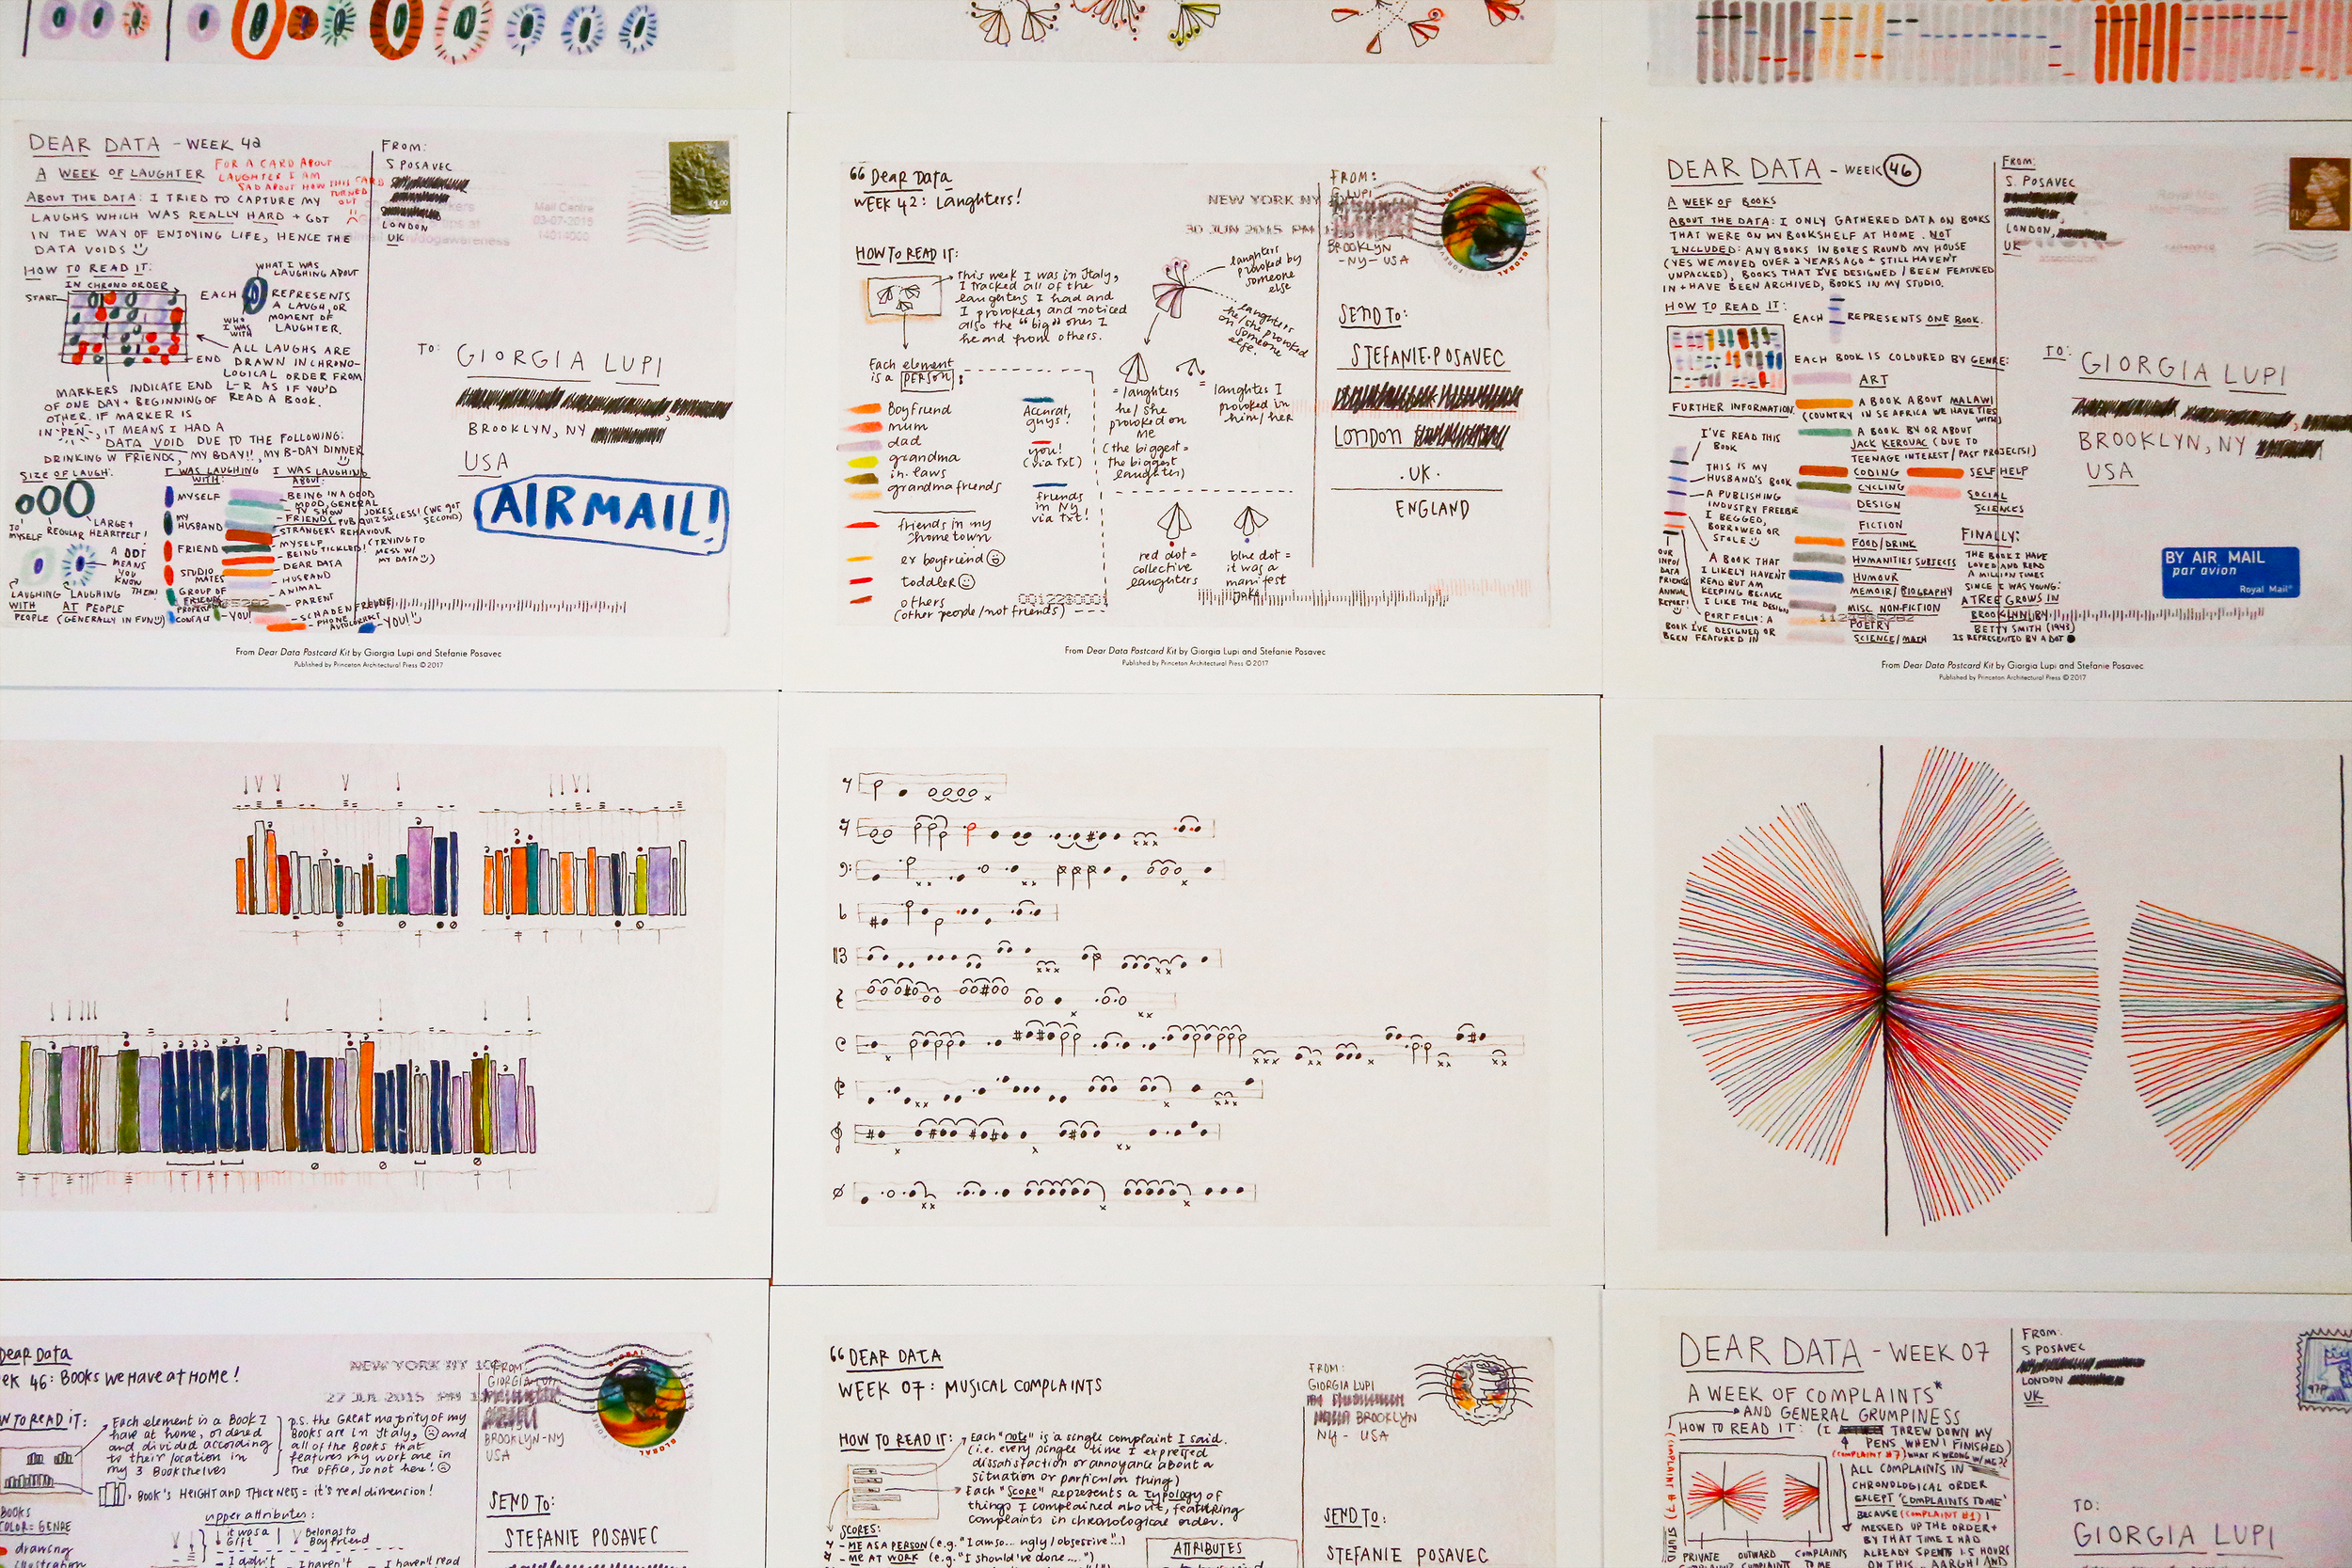 DEAR DATA - WEEK 42
A WEEK OF LAUGHTER
FOR A CARD ABOUT
LAUGHTER I AM
SAD ABOUT HOW THIS CARD
TURNED
OUT
ABOUT THE DATA: I TRIED TO CAPTURE MY
LAUGHS WHICH WAS REALLY HARD + GOT
IN THE WAY OF ENJOYING LIFE, HENCE THE
DATA VOIDS
HOW TO READ IT:
IN CHRONO ORDER
START
END
WHAT I WAS
LAUGHING ABOUT
EACH
REPRESENTS
A LAUGH, OR
MOMENT OF
LAUGHTER.
WHO
I WAS
WITH
ALL LAUGHS ARE
DRAWN IN CHRONO-
LOGICAL ORDER FROM
L-R AS IF YOU'D
READ A BOOK.
MARKERS INDICATE END
OF ONE DAY + BEGINNING OF
OTHER. IF MARKER IS
IN "PEN", IT MEANS I HAD A
DATA VOID DUE TO THE FOLLOWING:
DRINKING W FRIENDS, MY BDAY!!, MY B-DAY DINNER
SIZE OF LAUGH:
TO
MYSELF
REGULAR
LARGE +
HEARTFELT!
A DOT
MEANS
YOU
KNOW
THEM!
LAUGHING
WITH
PEOPLE
LAUGHING
AT PEOPLE
(GENERALLY IN FUN)
I WAS LAUGHING
WITH:
MYSELF
MY
HUSBAND
FRIEND
STUDIO
MATES
GROUP OF
FRIENDS
YOU!
I WAS LAUGHING
ABOUT:
BEING IN A GOOD
MOOD, GENERAL
TV SHOW JOKES
FRIENDS PUB QUIZ SUCCESS! (WE GOT
SECOND)
STRANGERS BEHAVIOUR
MYSELF
BEING TICKLED! (TRYING TO
MESS W/
MY DATA)
DEAR DATA
HUSBAND
ANIMAL
PARENT
SCHADENFREUDE
PHONE
AUTOCORRECT
YOU!
FROM:
S POSAVEC
LONDON
UK
Mail Centre
03-07-2015
TO:
GIORGIA LUPI
BROOKLYN, NY
USA
AIRMAIL!
From Dear Data Postcard Kit by Giorgia Lupi and Stefanie Posavec
Published by Princeton Architectural Press © 2017
Dear Data
WEEK 42: Laughters!
HOW TO READ IT:
This week I was in Italy,
I tracked all of the
laughters I had and
I provoked, and noticed
also the "big" ones I
heard from others.
laughters
provoked by
someone
else
laughters
he/she provoked
on someone
else.
Each element
is a PERSON:
Boyfriend
mum
dad
grandma
in-laws
grandma friends
friends in my
hometown
ex boyfriend
toddler
others
(other people/not friends)
Accurat,
guys!
you!
(via txt)
friends
in NY
via txt!
= laughters
he/she
provoked on
me
(the biggest =
the biggest
laughter)
= laughters I
provoked in
him/her
red dot =
collective
laughters
blue dot =
it was a
manifest
joke
0012280001
NEW YORK NY
30 JUN 2015 PM
FROM:
G. LUPI
BROOKLYN
- NY - USA
GLOBAL
FOREVER
SEND TO:
STEFANIE POSAVEC
LONDON
. UK .
ENGLAND
From Dear Data Postcard Kit by Giorgia Lupi and Stefanie Posavec
Published by Princeton Architectural Press © 2017
DEAR DATA - WEEK 46
A WEEK OF BOOKS
ABOUT THE DATA: I ONLY GATHERED DATA ON BOOKS
THAT WERE ON MY BOOKSHELF AT HOME. NOT
INCLUDED: ANY BOOKS IN BOXES ROUND MY HOUSE
(YES WE MOVED OVER 2 YEARS AGO + STILL HAVEN'T
UNPACKED), BOOKS THAT I'VE DESIGNED / BEEN FEATURED
IN + HAVE BEEN ARCHIVED, BOOKS IN MY STUDIO.
HOW TO READ IT:
EACH
REPRESENTS ONE BOOK.
EACH BOOK IS COLOURED BY GENRE:
ART
A BOOK ABOUT MALAWI
(COUNTRY IN SE AFRICA WE HAVE TIES
WITH)
A BOOK BY OR ABOUT
JACK KEROUAC (DUE TO
TEENAGE INTEREST / PAST PROJECTS)
CODING
CYCLING
DESIGN
FICTION
FOOD/DRINK
HUMANITIES SUBJECTS
HUMOUR
MEMOIR/BIOGRAPHY
MISC NON-FICTION
POETRY
SCIENCE/MATH
SELF HELP
SOCIAL
SCIENCES
FURTHER INFORMATION:
I'VE READ THIS
BOOK
THIS IS MY
HUSBAND'S BOOK
A PUBLISHING
INDUSTRY FREEBIE
I BEGGED,
BORROWED OR
STOLE
A BOOK THAT
I LIKELY HAVEN'T
READ BUT AM
KEEPING BECAUSE
I LIKE THE DESIGN
PORTFOLIO: A
BOOK I'VE DESIGNED OR
BEEN FEATURED IN
FINALLY:
THE BOOK I HAVE
LOVED AND READ
A MILLION TIMES
SINCE I WAS YOUNG:
A TREE GROWS IN
BROOKLYN BY
BETTY SMITH (1943)
IS REPRESENTED BY A DOT
FROM:
S. POSAVEC
LONDON,
UK
TO:
GIORGIA LUPI
BROOKLYN, NY
USA
BY AIR MAIL
par avion
Royal Mail
From Dear Data Postcard Kit by Giorgia Lupi and Stefanie Posavec
Published by Princeton Architectural Press © 2017
Dear Data
EK 46: Books We Have at Home!
W TO READ IT:
Each element is a Book I
have at home, ordered
and divided according
to their location in
my 3 Bookshelves
p.s. the GREAT majority of my
Books are in Italy, and
all of the Books that
features my work are in
the office, so not here!
Book's HEIGHT AND THICKNESS = it's real dimension!
BOOKS
COLOR = GENRE
drawing
illustration
upper attributes:
it was a
Gift
Belongs to
Boyfriend
I didn't
I haven't
I haven't read
NEW YORK NY 100
27 JUL 2015 PM
FROM:
GIORGIA LUPI
BROOKLYN-NY
USA
GLOBAL
SEND TO:
STEFANIE POSAVEC
DEAR DATA
WEEK 07: MUSICAL COMPLAINTS
HOW TO READ IT:
Each "note" is a single complaint I said.
(i.e. every single time I expressed
dissatisfaction or annoyance about a
situation or particular thing)
Each "Score" represents a typology of
things I complained about, featuring
complaints in chronological order.
SCORES:
- ME AS A PERSON (e.g. "I am so... ugly/obsessive"..)
- ME AT WORK (e.g. "I should've done....")
ATTRIBUTES
FROM:
GIORGIA LUPI
BROOKLYN
NY - USA
SEND TO:
STEFANIE POSAVEC
DEAR DATA - WEEK 07
A WEEK OF COMPLAINTS*
AND GENERAL GRUMPINESS
HOW TO READ IT: (I THREW DOWN MY
PENS WHEN I FINISHED)
(COMPLAINT #2) WHAT IS WRONG W/ ME?
ALL COMPLAINTS IN
CHRONOLOGICAL ORDER
EXCEPT 'COMPLAINTS TO ME'
BECAUSE (COMPLAINT #1) I
MESSED UP THE ORDER +
BY THAT TIME I HAD
ALREADY SPENT 1.5 HOURS
ON THIS... AARGH! AND
PRIVATE
COMPLAINTS
OUTWARD
COMPLAINTS
COMPLAINTS
TO ME
FROM:
S POSAVEC
LONDON
UK
97P
TO:
GIORGIA LUPI